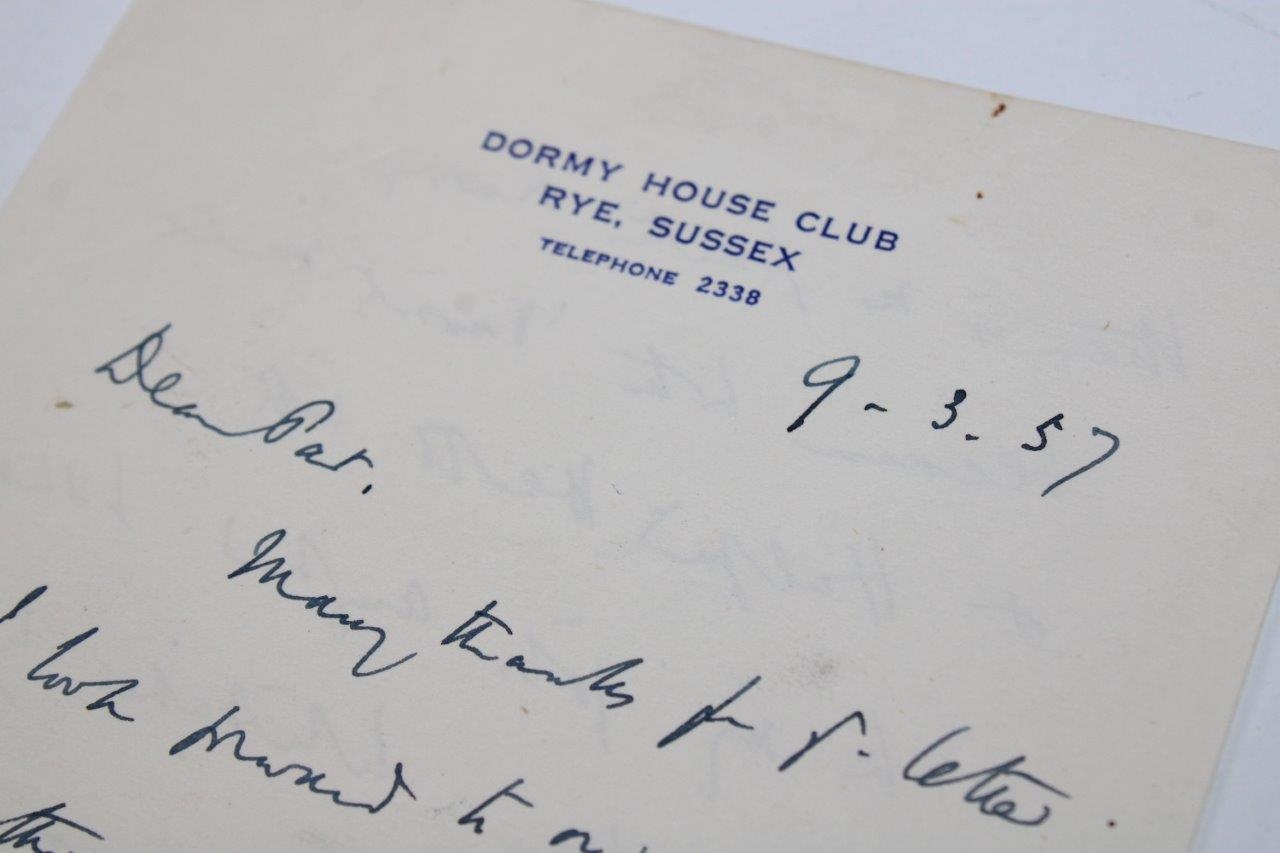 DORMY HOUSE CLUB
RYE, SUSSEX
TELEPHONE 2338
9-3.57
Dear Pat.
Many thanks for yr. letter.
I look forward to